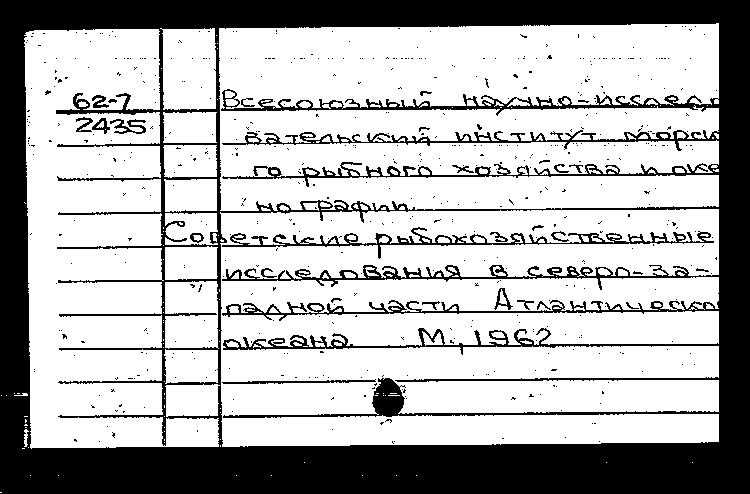 62-7
2435
Всесоюзный научно-исследо
вательский институт морск
го рыбного хозяйства и оке
нографии.
Советские рыбохозяйственные
исследования в северо-за-
падной части Атлантическо
океана. М., 1962